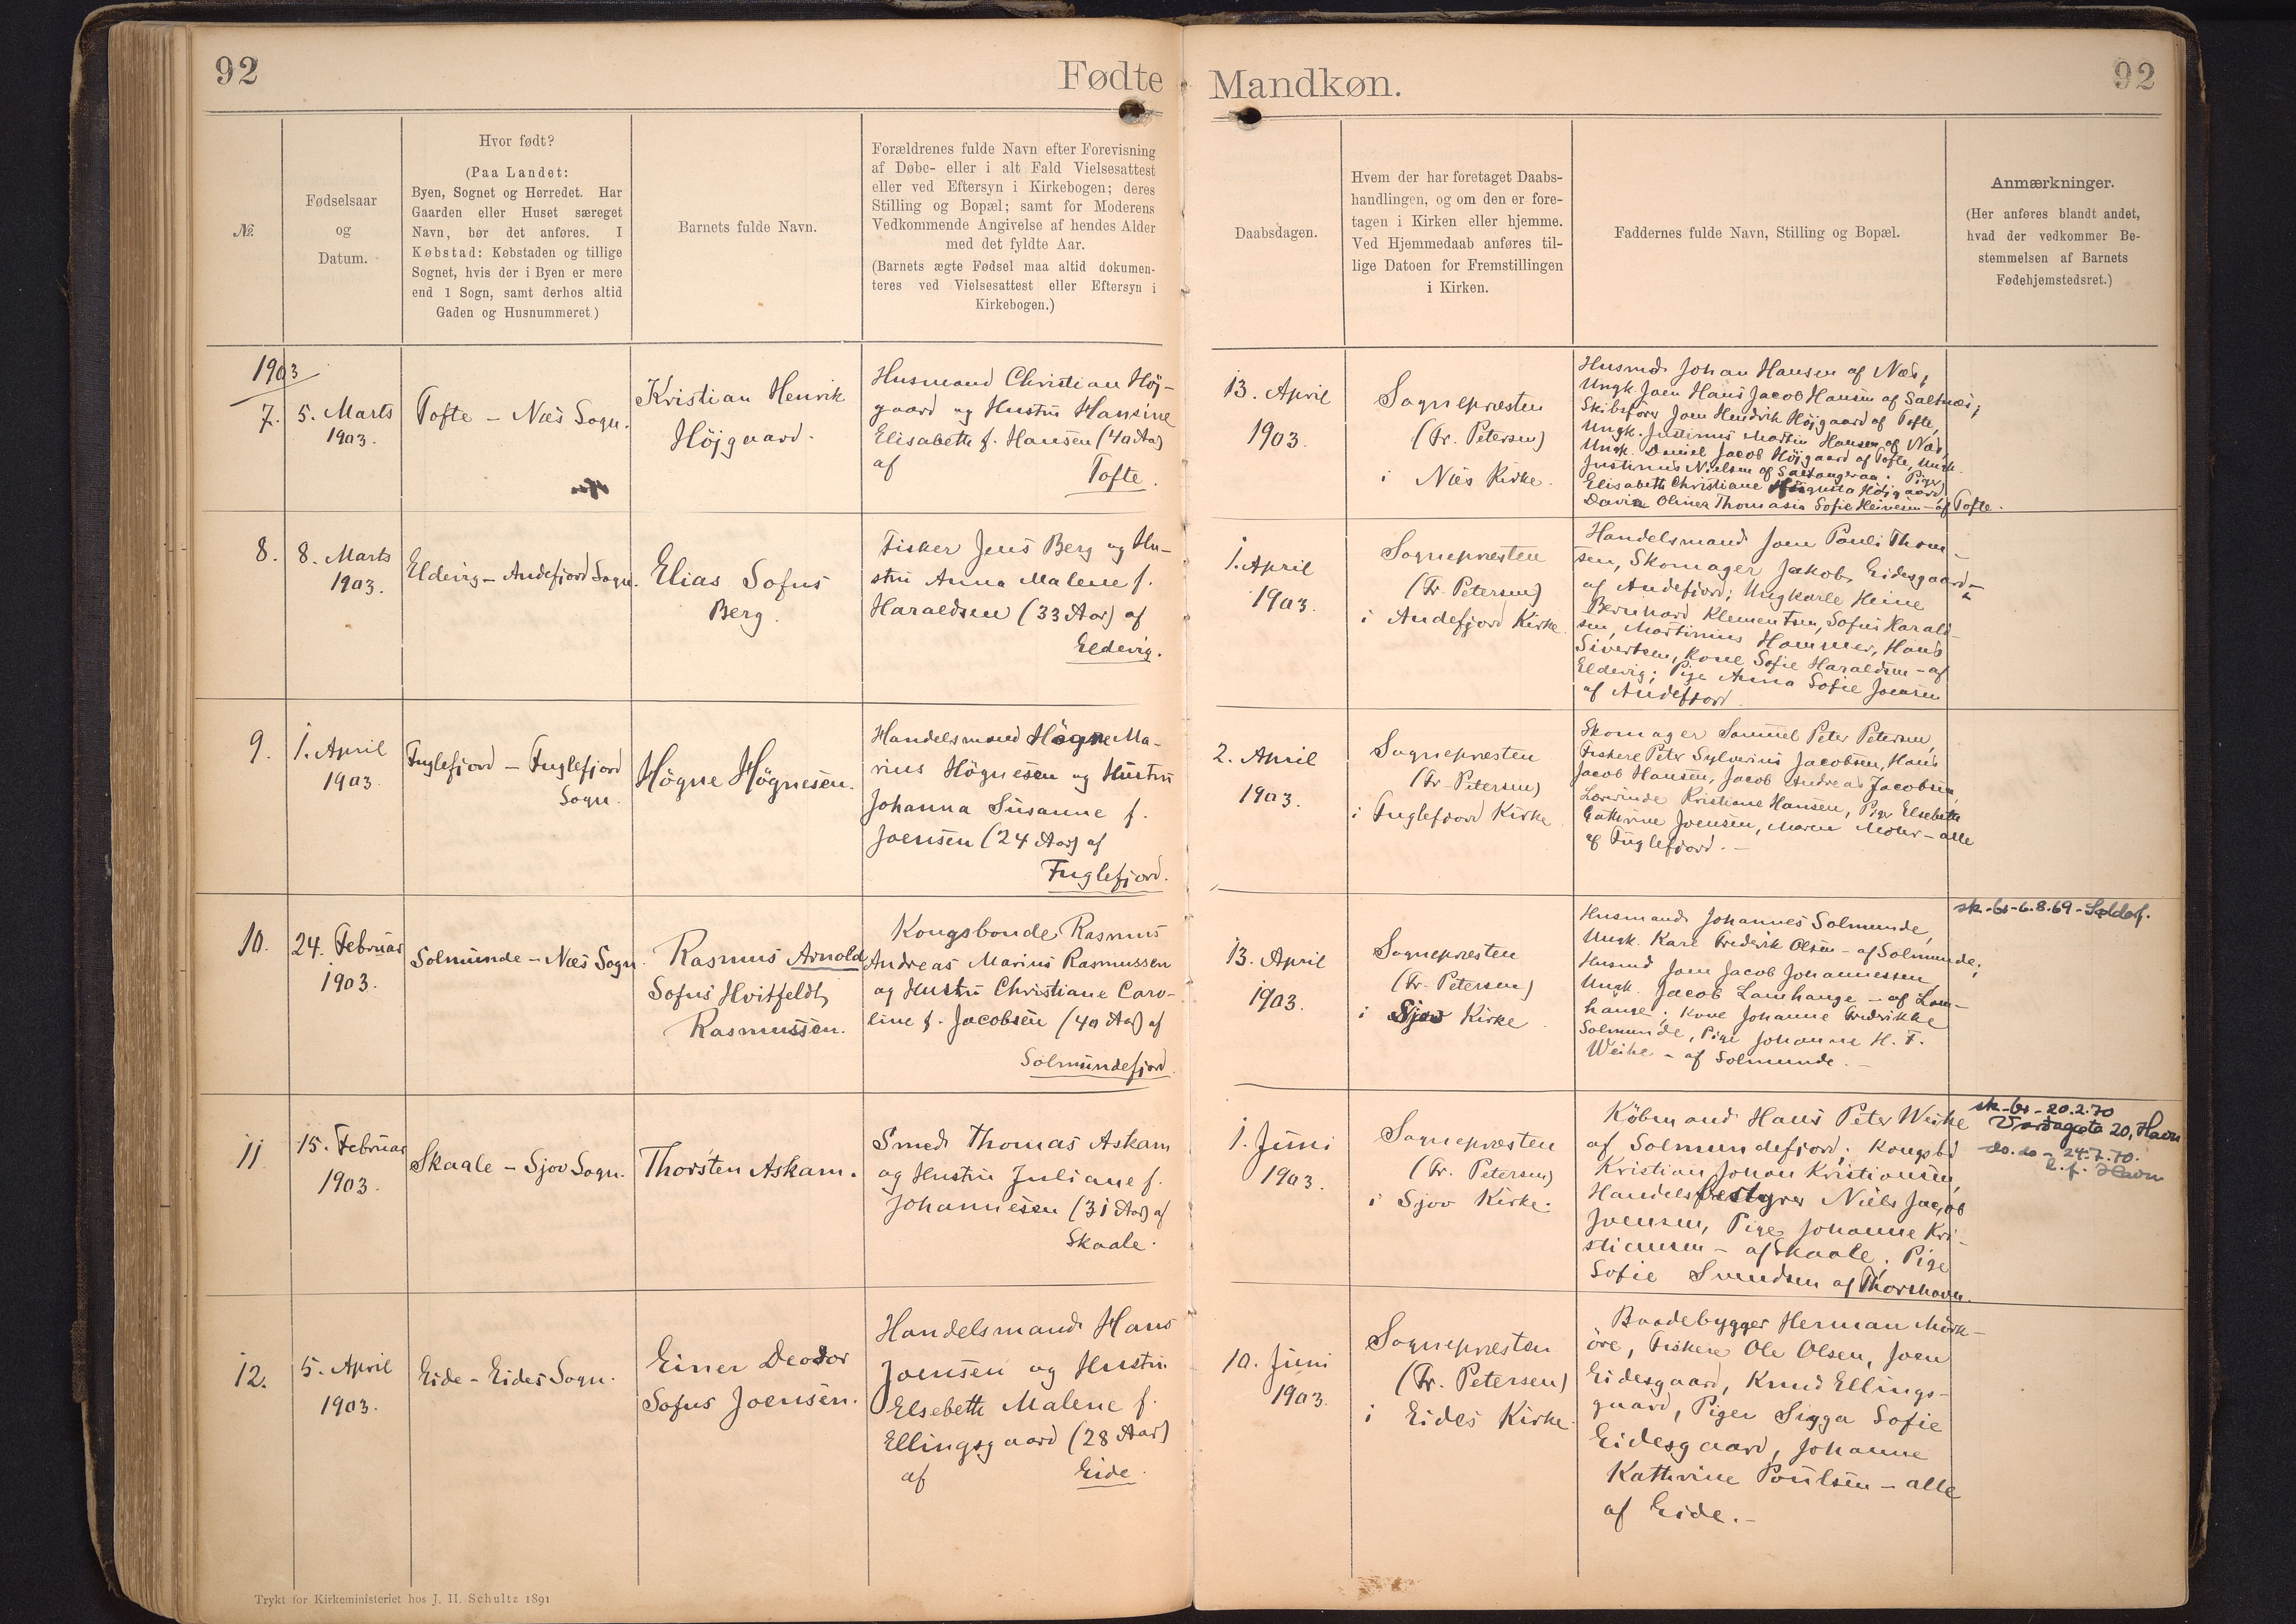 92
Fødte
Mandkøn.
92
№.
Fødselsaar
og
Datum.
Hvor født?
(Paa Landet:
Byen, Sognet og Herredet. Har
Gaarden eller Huset særeget
Navn, bør det anføres. I
Købstad: Købstaden og tillige
Sognet, hvis der i Byen er mere
end 1 Sogn, samt derhos altid
Gaden og Husnummeret.)
Barnets fulde Navn.
Forældrenes fulde Navn efter Forevisning
af Døbe- eller i alt Fald Vielsesattest
eller ved Eftersyn i Kirkebogen; deres
Stilling og Bopæl; samt for Moderens
Vedkommende Angivelse af hendes Alder
med det fyldte Aar.
(Barnets ægte Fødsel maa altid dokumen-
teres ved Vielsesattest eller Eftersyn i
Kirkebogen.)
Daabsdagen.
Hvem der har foretaget Daabs-
handlingen, og om den er fore-
tagen i Kirken eller hjemme.
Ved Hjemmedaab anføres til-
lige Datoen for Fremstillingen
i Kirken.
Faddernes fulde Navn, Stilling og Bopæl.
Anmærkninger.
(Her anføres blandt andet,
hvad der vedkommer Be-
stemmelsen af Barnets
Fødehjemstedsret.)
1903
7.
5. Marts
1903.
Tofte - Næs Sogn.
Kristian Henrik
Höjgaard.
Husmand Christian Höj-
gaard og Hustru Hansine
Elisabeth f. Hansen (40 Aar)
af
Tofte.
13. April
1903.
Sognepræsten
(Fr. Petersen)
i Næs Kirke.
Husmd Johan Hansen af Næs,
Ungk. Joen Hans Jacob Hansen af Saltnæs;
Skibsfører Joen Hendrik Höjgaard af Tofte,
Ungk. Justinus Martin Hansen af Næs,
Ungk. Daniel Jacob Höjgaard af Tofte, Ungk.
Justinus Nielsen af Saltangeraa. Piger
Elisabeth Christiane Augusta Höjgaard,
Davia Olinea Thomasia Sofie Heinesen - af Tofte.
8.
8. Marts
1903.
Eldevig - Andefjord Sogn.
Elias Sofus
Berg.
Fisker Jens Berg og Hu-
stru Anna Malene f.
Haraldsen (33 Aar) af
Eldevig.
1. April
1903.
Sognepræsten
(Fr. Petersen)
i Andefjord Kirke.
Handelsmand Joen Pauli Thom-
sen, Skomager Jakob Eidesgaard -
af Andefjord; Ungkarle Heine
Bernhard Klementsen, Sofus Harald-
sen, Martinus Hammer, Hans
Sivertsen, Kone Sofie Haraldsen - af
Eldevig; Pige Anna Sofie Joensen
af Andefjord.
9.
1. April
1903.
Fuglefjord - Fuglefjord
Sogn.
Högne Högnesen.
Handelsmand Högne Ma-
rius Högnesen og Hustru
Johanna Susanne f.
Joensen (24 Aar) af
Fuglefjord.
2. April
1903.
Sognepræsten
(Fr. Petersen)
i Fuglefjord Kirke
Skomager Samuel Peter Petersen,
Fiskere Peter Sylverius Jacobsen, Hans
Jacob Hansen, Jacob Andreas Jacobsen,
Kristiane Hansen, Piger Elsebeth
Cathrine Joensen, Maren Mohr - alle
af Fuglefjord. -
10.
24. Februar
1903.
Solmunde - Næs Sogn.
Rasmus Arnold
Sofus Hvitfeldt
Rasmussen.
Kongsbonde Rasmus
Andreas Marius Rasmussen
og Hustru Christiane Caro-
line f. Jacobsen (40 Aar) af
Solmundefjord.
13. April
1903.
Sognepræsten
(Fr. Petersen)
i Sjov Kirke.
Husmand Johannes Solmunde,
Ungk. Karl Frederik Olsen - af Solmunde;
Husmd Joen Jacob Johannessen,
Ungk. Jacob Lamhauge - af Lam-
hauge; Kone Johanne Frederikke
Solmunde, Pige Johanne H. F.
Weihe - af Solmunde. -
sk.-br-6.8.69-Solderf.
11.
15. Februar
1903.
Skaale - Sjov Sogn.
Thorsten Askam.
Smed Thomas Askam
og Hustru Juliane f.
Johannesen (31 Aar) af
Skaale.
1. Juni
1903.
Sognepræsten
(Fr. Petersen)
i Sjov Kirke.
Köbmand Hans Peter Weihe
af Solmundefjord; Kongsbd
Kristian Johan Kristiansen,
Handelsbestyrer Niels Jacob
Joensen, Pige Johanne Kri-
stiansen - af Skaale, Pige
Sofie Svendsen af Thorshavn.
sk.-br-20.2.70
Vardagøta 20, Havn
do. do - 24.7.70.
Havn
12.
5. April
1903.
Eide - Eides Sogn.
Einer Deodor
Sofus Joensen.
Handelsmand Hans
Joensen og Hustru
Elsebeth Malene f.
Ellingsgaard (28 Aar)
af
Eide.
10. Juni
1903.
Sognepræsten
(Fr. Petersen)
i Eides Kirke.
Baadebygger Herman Mörk-
öre, Fiskere Ole Olsen, Joen
Eidesgaard, Knud Ellings-
gaard, Piger Sigga Sofie
Eidesgaard, Johanne
Kathrine Poulsen - alle
af Eide. -
Trykt for Kirkeministeriet hos J. H. Schultz 1891